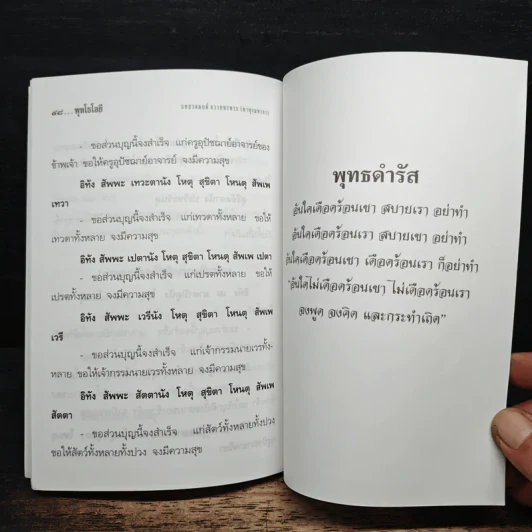 ๔๘... พุทโธโลยี
- ขอส่วนบุญนี้จงสำเร็จ แก่ครูอุปัชฌาย์อาจารย์ของ
ข้าพเจ้า ขอให้ครูอุปัชฌาย์อาจารย์ จงมีความสุข
อิทัง สัพพะ เทวะตานัง โหตุ สุขิตา โหนตุ สัพเพ
เทวา
- ขอส่วนบุญนี้จงสำเร็จ แก่เทวดาทั้งหลาย ขอให้
เทวดาทั้งหลาย จงมีความสุข
อิทัง สัพพะ เปตานัง โหตุ สุขิตา โหนตุ สัพเพ เปตา
- ขอส่วนบุญนี้จงสำเร็จ แก่เปรตทั้งหลาย ขอให้
เปรตทั้งหลาย จงมีความสุข
อิทัง สัพพะ เวรีนัง โหตุ สุขิตา โหนตุ สัพเพ
เวรี
- ขอส่วนบุญนี้จงสำเร็จ แก่เจ้ากรรมนายเวรทั้ง-
หลาย ขอให้เจ้ากรรมนายเวรทั้งหลาย จงมีความสุข
อิทัง สัพพะ สัตตานัง โหตุ สุขิตา โหนตุ สัพเพ
สัตตา
- ขอส่วนบุญนี้จงสำเร็จ แก่สัตว์ทั้งหลายทั้งปวง
ขอให้สัตว์ทั้งหลายทั้งปวง จงมีความสุข
พุทธดำรัส
อันใดเดือดร้อนเขา สบายเรา อย่าทำ
อันใดเดือดร้อนเรา สบายเขา อย่าทำ
อันใดเดือดร้อนเขา เดือดร้อนเรา ก็อย่าทำ
"อันใดไม่เดือดร้อนเขา ไม่เดือดร้อนเรา
จงพูด จงคิด และกระทำเถิด"